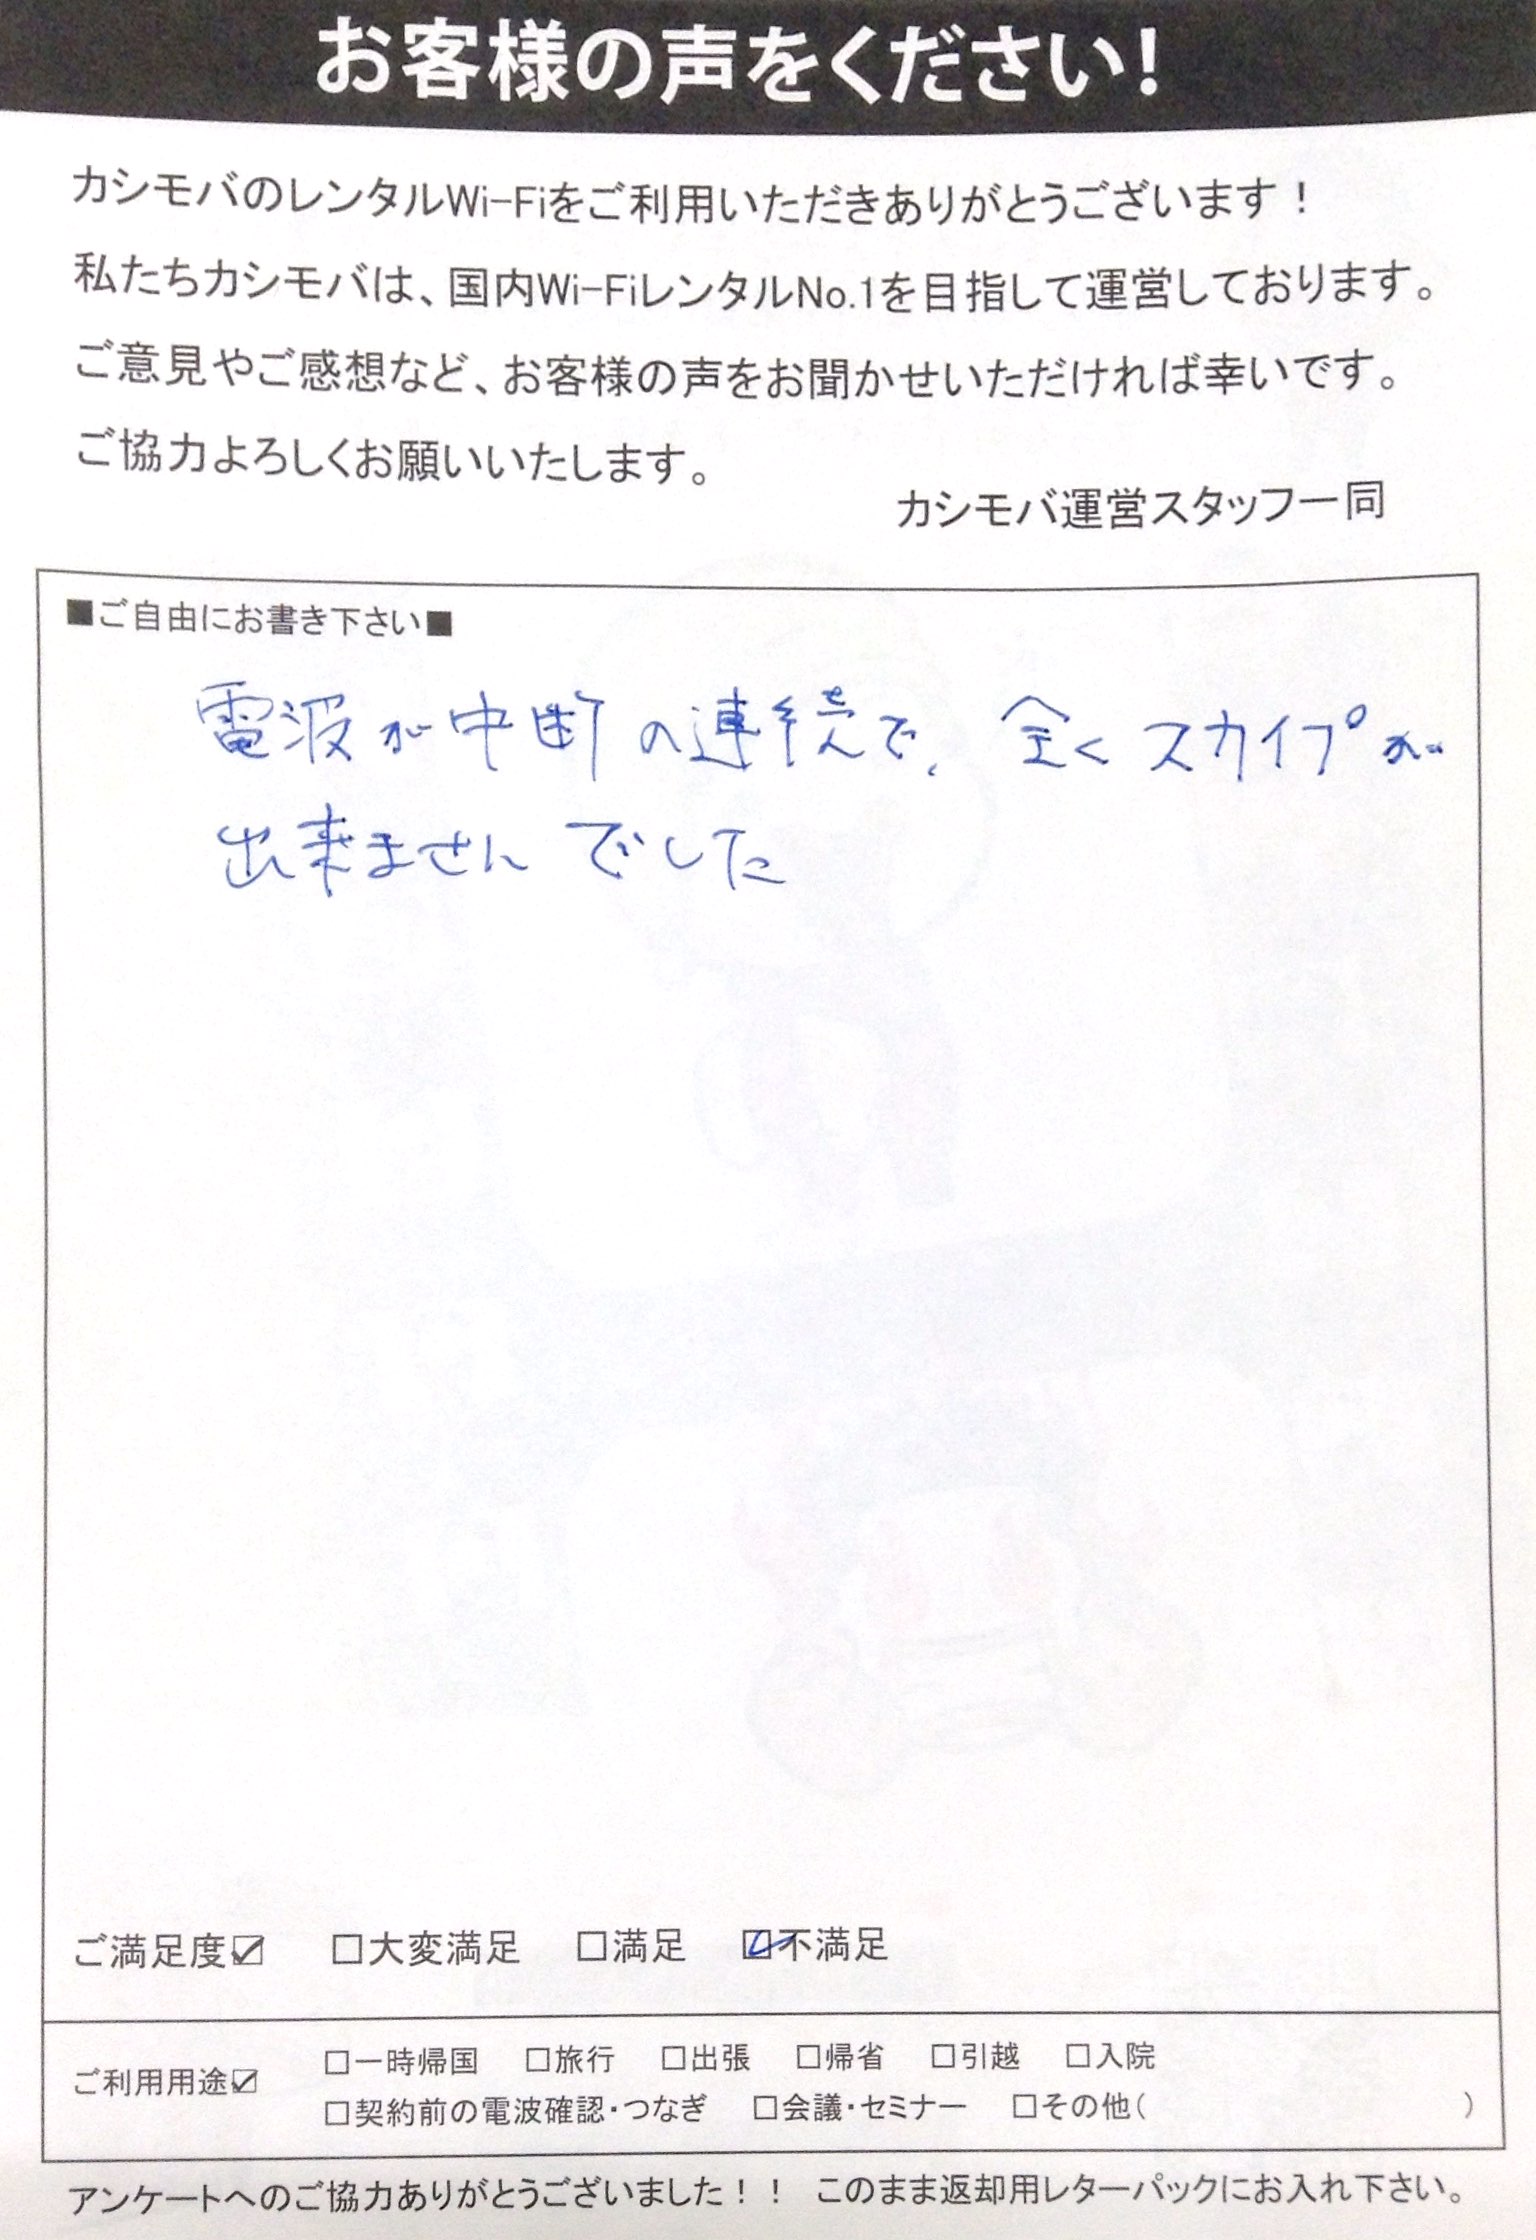 お客様の声をください!
カシモバのレンタルWi-Fiをご利用いただきありがとうございます！
私たちカシモバは、国内Wi-FiレンタルNo.1を目指して運営しております。
ご意見やご感想など、お客様の声をお聞かせいただければ幸いです。
ご協力よろしくお願いいたします。
カシモバ運営スタッフ一同
■ご自由にお書き下さい■
電波が中断の連続で、全くスカイプが
出来ませんでした
ご満足度☑ □大変満足 □満足 ☑不満足
ご利用用途☑ □一時帰国 □旅行 □出張 □帰省 □引越 □入院
□契約前の電波確認・つなぎ □会議・セミナー □その他( )
アンケートへのご協力ありがとうございました！！ このまま返却用レターパックにお入れ下さい。